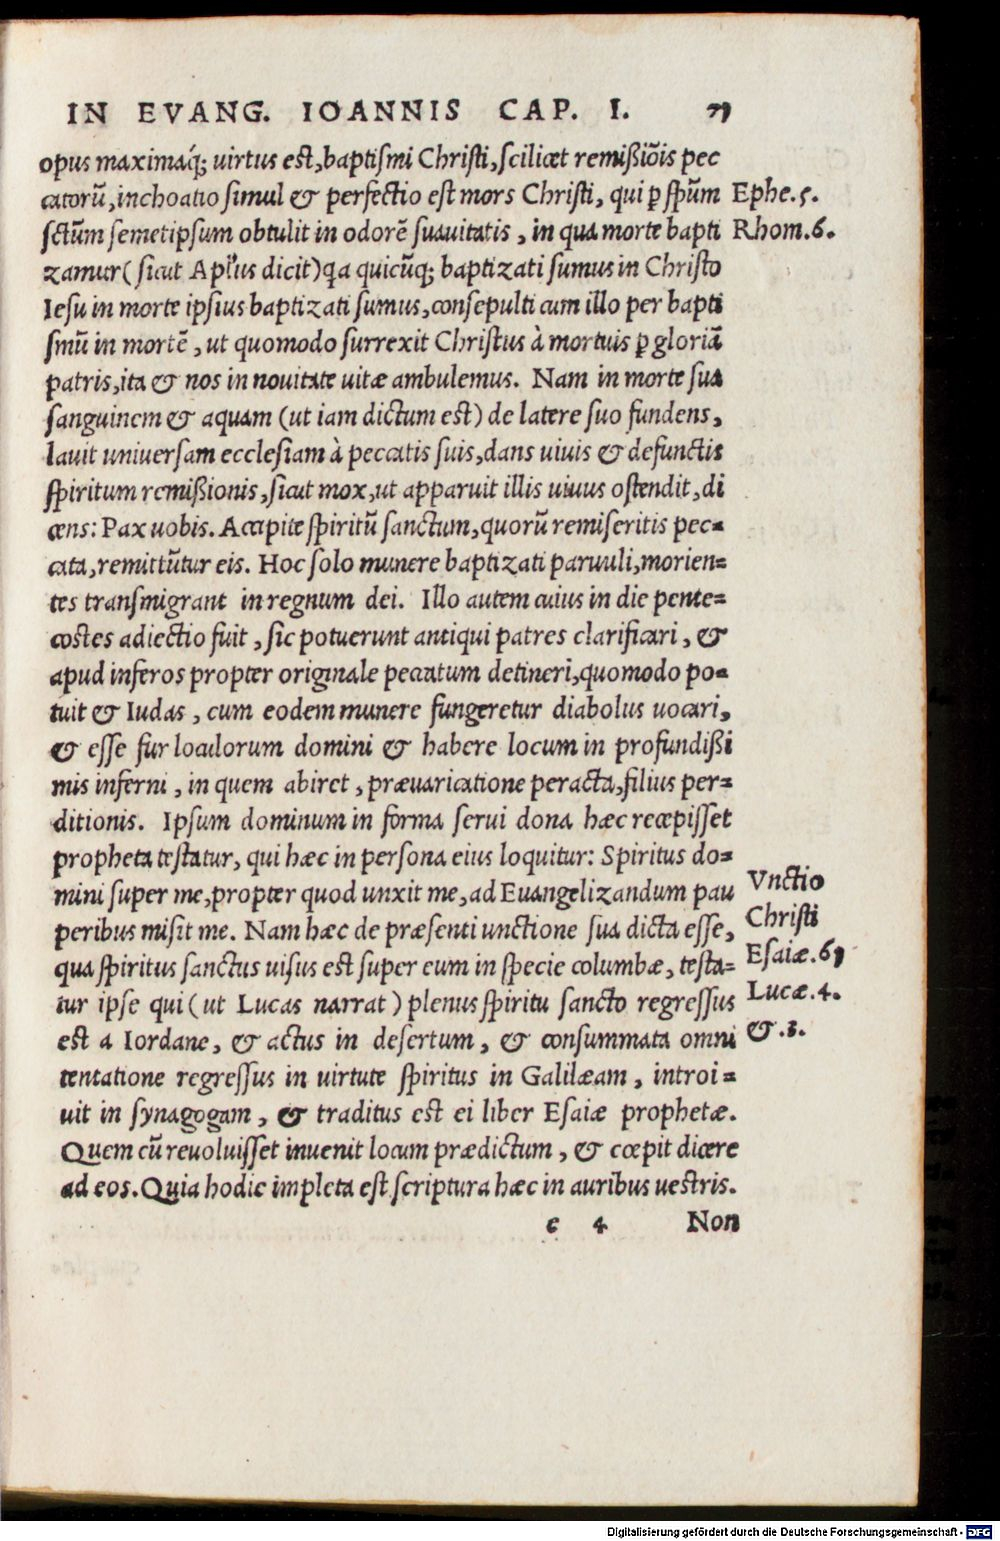 IN EVANG. IOANNIS CAP. I. 71
opus maximaq́; uirtus est, baptismi Christi, scilicet remißiōis pec
catorū, inchoatio simul & perfectio est mors Christi, qui ꝑ spūm
sctūm semetipsum obtulit in odorē suauitatis, in qua morte bapti
zamur (sicut Apľus dicit) qa quicūq; baptizati sumus in Christo
Iesu in morte ipsius baptizati sumus, consepulti cum illo per bapti
smū in mortē, ut quomodo surrexit Christus à mortuis ꝑ gloriā
patris, ita & nos in nouitate uitæ ambulemus. Nam in morte sua
sanguinem & aquam (ut iam dictum est) de latere suo fundens,
lauit uniuersam ecclesiam à peccatis suis, dans uiuis & defunctis
spiritum remißionis, sicut mox, ut apparuit illis uiuus ostendit, di
cens: Pax uobis. Accipite spiritū sanctum, quorū remiseritis pec=
cata, remittūtur eis. Hoc solo munere baptizati paruuli, morien=
tes transmigrant in regnum dei. Illo autem cuius in die pente=
costes adiectio fuit, sic potuerunt antiqui patres clarificari, &
apud inferos propter originale peccatum detineri, quomodo po=
tuit & Iudas, cum eodem munere fungeretur diabolus uocari,
& esse fur loculorum domini & habere locum in profundißi
mis inferni, in quem abiret, præuaricatione peracta, filius per=
ditionis. Ipsum dominum in forma serui dona hæc recepisset
propheta testatur, qui hæc in persona eius loquitur: Spiritus do=
mini super me, propter quod unxit me, ad Euangelizandum pau
peribus misit me. Nam hæc de præsenti unctione sua dicta esse,
qua spiritus sanctus uisus est super eum in specie columbæ, testa=
tur ipse qui (ut Lucas narrat) plenus spiritu sancto regressus
est a Iordane, & actus in desertum, & consummata omni
tentatione regressus in uirtute spiritus in Galilæam, introi=
uit in synagogam, & traditus est ei liber Esaiæ prophetæ.
Quem cū reuoluisset inuenit locum prædictum, & cœpit dicere
ad eos. Quia hodie impleta est scriptura hæc in auribus uestris.
e 4 Non
Ephe. 5.
Rhom. 6.
Vnctio
Christi
Esaiæ. 61
Lucæ. 4.
& .3.
Digitalisierung gefördert durch die Deutsche Forschungsgemeinschaft - DFG